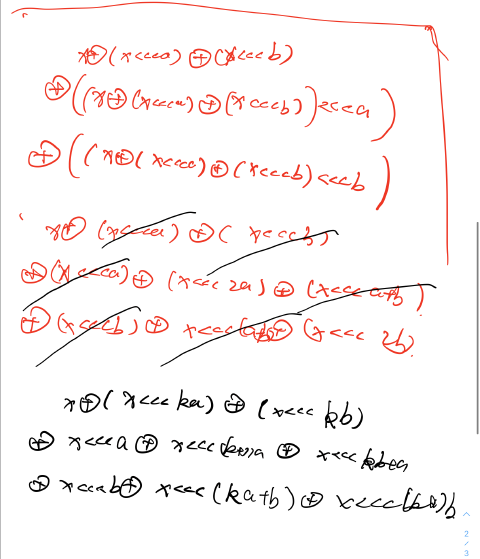 x⊕(x<<<a)⊕(x<<<b)
⊕((x⊕(x<<<a)⊕(x<<<b))<<<a)
⊕((x⊕(x<<<a)⊕(x<<<b)<<<b)
x⊕(x<<<a)⊕(x<<<b)
⊕(x<<<a)⊕(x<<<2a)⊕(x<<<a+b)
⊕(x<<<b)⊕x<<<(a+b)⊕(x<<<2b)
x⊕(x<<<ka)⊕(x<<<kb)
⊕x<<<a⊕x<<<(k+1)a⊕x<<<kb+a
⊕x<<<b⊕x<<<(ka+b)⊕x<<<(k+1)b
2
/
3